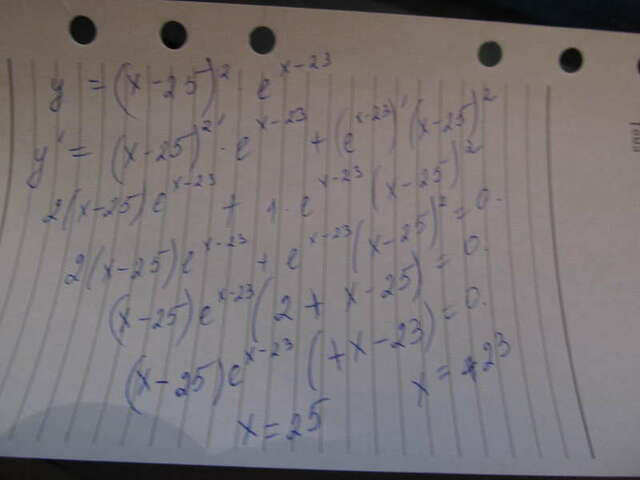 y = (x-25)² · e^(x-23)
y' = (x-25)²' · e^(x-23) + (e^(x-23))' (x-25)²
2(x-25)e^(x-23) + 1·e^(x-23) (x-25)² = 0.
2(x-25)e^(x-23) + e^(x-23) (x-25)² = 0.
(x-25)e^(x-23) (2+x-25) = 0.
(x-25)e^(x-23) (+x-23)
x = 25 x = 23